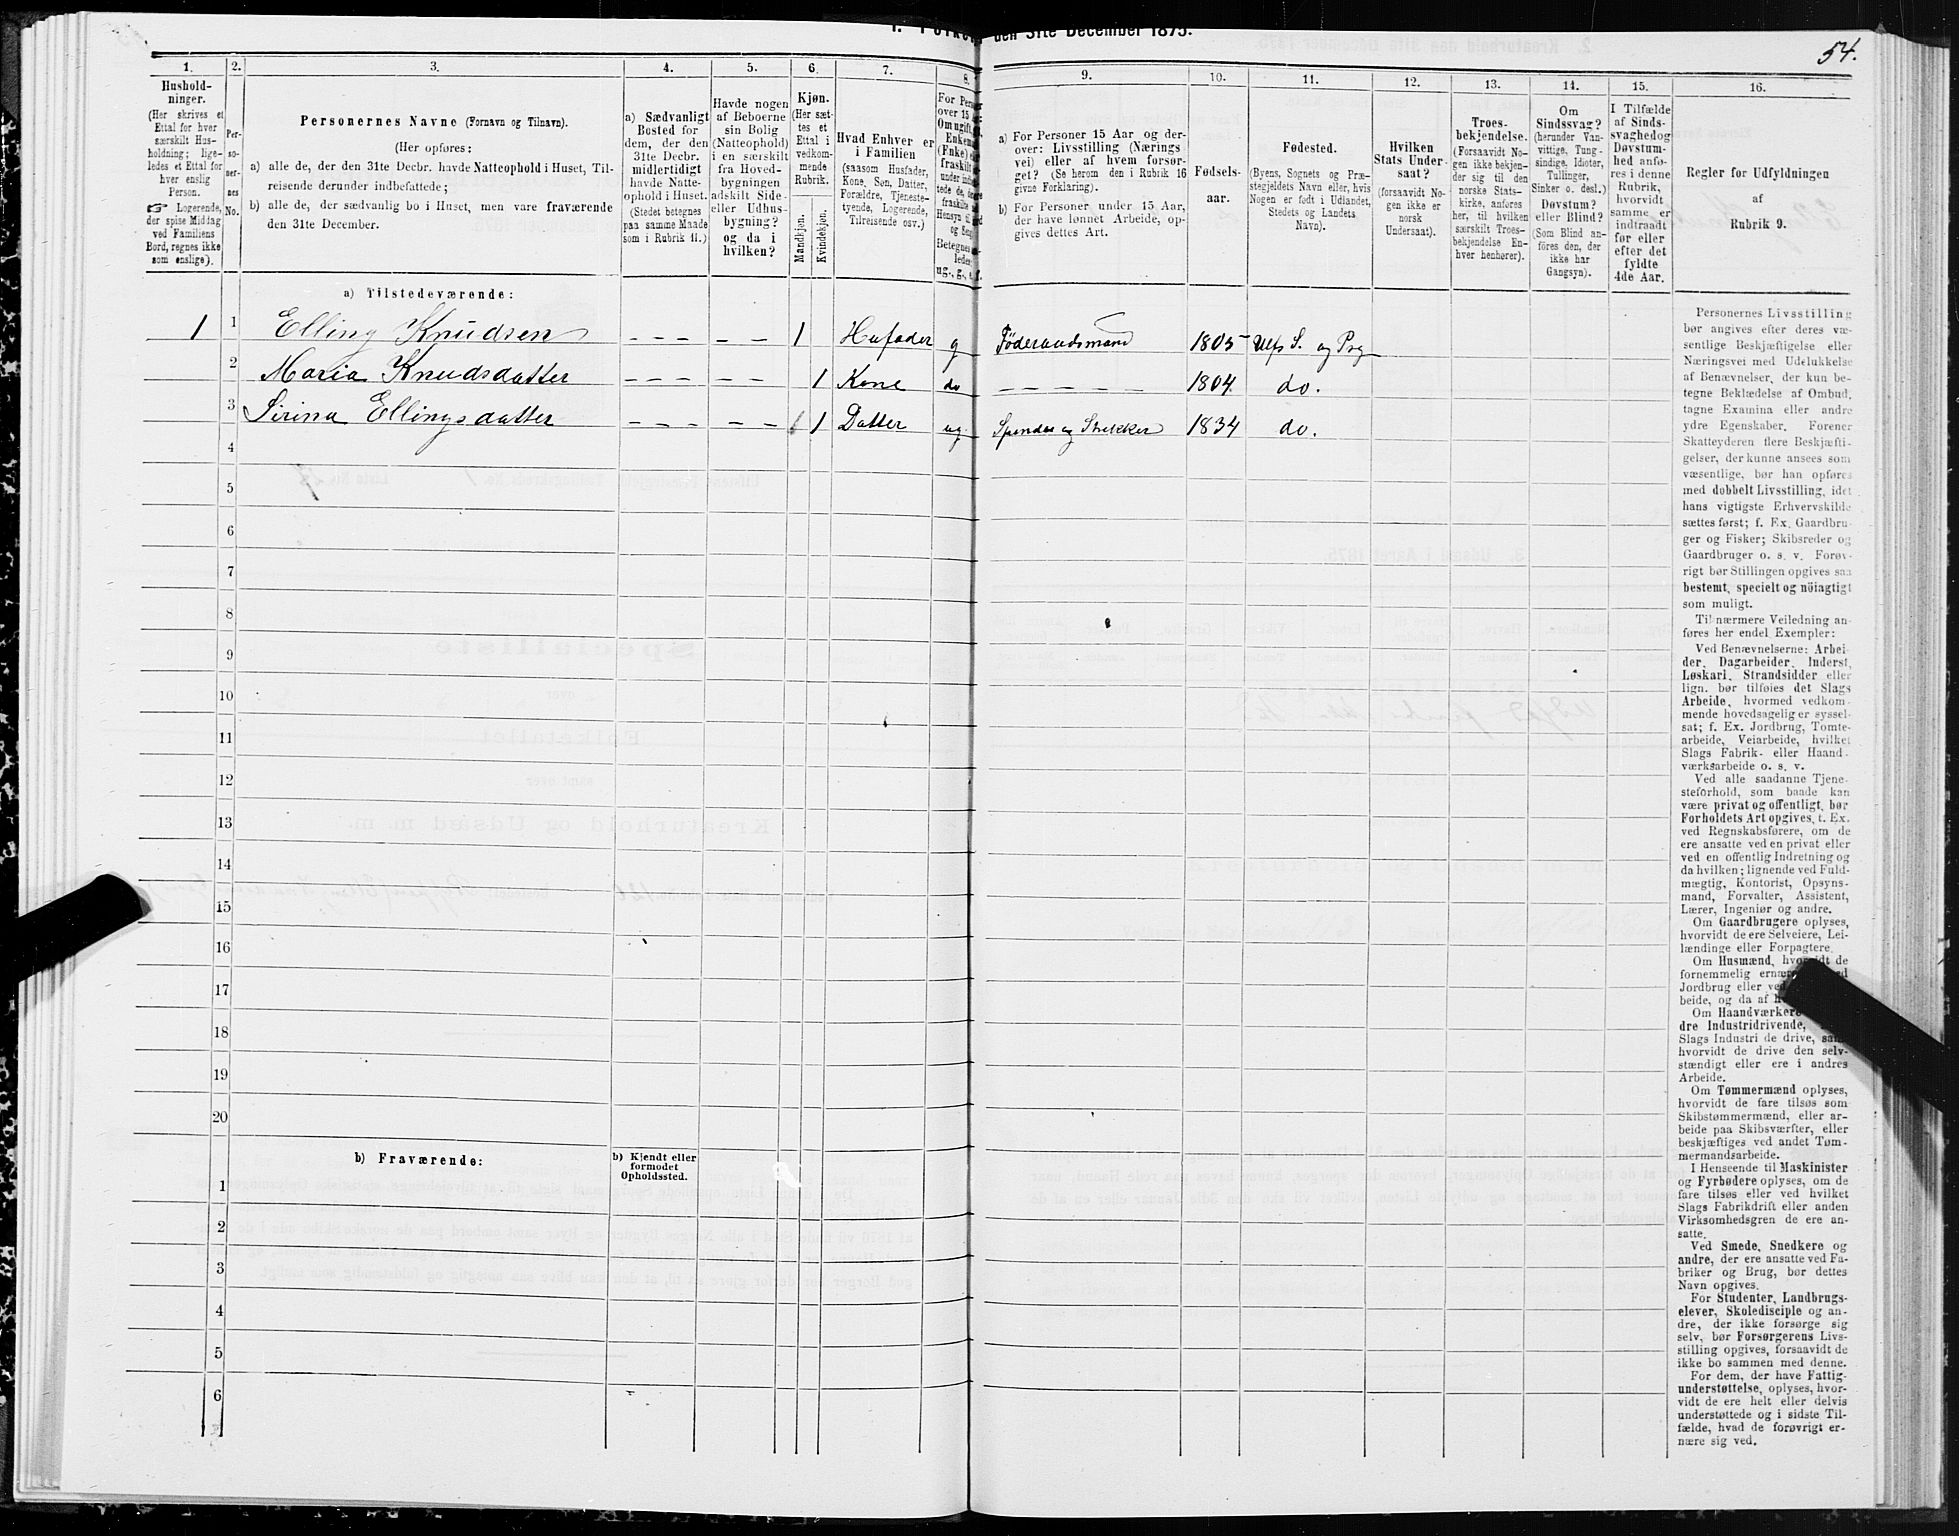 1. Folke den 31te December 1875.
54.
1.
2.
3.
4.
5.
6.
7.
8.
9.
10.
11.
12.
13.
14.
15.
16.
Hushold-
ninger.
(Her skrives et
Ettal for hver
særskilt Hus-
holdning; lige-
ledes et Ettal for
hver enslig
Person.
☞ Logerende,
der spise Middag
ved Familiens
Bord, regnes ikke
som enslige).
Per-
so-
ner-
nes
No.
Personernes Navne (Fornavn og Tilnavn).
(Her opføres:
a) alle de, der den 31te Decbr. havde Natteophold i Huset, Til-
reisende derunder indbefattede;
b) alle de, der sædvanlig bo i Huset, men vare fraværende
den 31te December.
a) Sædvanligt
Bosted for
dem, der den
31te Decbr.
midlertidigt
havde Natte-
ophold i Huset.
(Stedet betegnes
paa samme Maade
som i Rubrik 11.)
Havde nogen
af Beboerne
sin Bolig
(Natteophold)
i en særskilt
fra Hoved-
bygningen
adskilt Side-
eller Udhus-
bygning?
og da i
hvilken?
Kjøn.
(Her sæt-
tes et
Ettal i
vedkom-
mende
Rubrik.
Mandkjøn.
Kvindekjøn.
Hvad Enhver er
i Familien
(saasom Husfader,
Kone, Søn, Datter,
Forældre, Tjeneste-
tyende, Logerende,
Tilreisende osv.)
For Per
over 15
Om ugift,
Enkem
(Enke)
fraskilt
under indbe
tede de,
fraskilte
Hensyn til
og Seng
Betegnes
ledes:
ug., g., e., f.
a) For Personer 15 Aar og der-
over: Livsstilling (Nærings
vei) eller af hvem forsør-
get? (Se herom den i Rubrik 16
givne Forklaring).
b) For Personer under 15 Aar,
der have lønnet Arbeide, op-
gives dettes Art.
Fødsels-
aar.
Fødested.
(Byens, Sognets og Præ-
stegjeldets Navn eller, hvis
Nogen er født i Udlandet,
Stedets og Landets
Navn).
Hvilken
Stats Under-
saat?
(forsaavidt No-
gen ikke er
norsk
Undersaat).
Troes-
bekjendelse.
(Forsaavidt No-
gen ikke bekjen-
der sig til den
norske Stats-
kirke, anføres
her, til hvilken
særskilt Troes-
bekjendelse En-
hver henhører).
Om
Sindssvag?
(herunder Van-
vittige, Tung-
sindige, Idioter,
Tullinger,
Sinker o. desl.)
Døvstum?
eller Blind?
(Som Blind an-
føres den, der
ikke har
Gangsyn).
I Tilfælde
af Sinds-
svaghed og
Døvstum-
hed anfø-
res i denne
Rubrik,
hvorvidt
samme er
indtraadt
før eller
efter det
fyldte
4de Aar.
Regler for Udfyldningen
af
Rubrik 9.
a) Tilstedeværende:
1 1 Elling Knudsen – – – – – 1 Husfader g Föderaadsmand 1805 Ulfs S. og Prg
2 Maria Knudsdatter – – – – – 1 Kone do – – – – – – 1804. do.
3 Sirina Ellingsdatter – – – – – 1 Datter ug. Spinder og Strikker 1834 do.
4
5
6
7
8
9
10
11
12
13
14
15
16
17
18
19
20
b) Fraværende:
b) Kjendt eller
formodet
Opholdssted.
1
2
3
4
5
6
Personernes Livsstilling
bør angives efter deres væ-
sentlige Beskjæftigelse eller
Næringsvei med Udelukkelse
af Benævnelser, der kun be-
tegne Beklædelse af Ombud,
tagne Examina eller andre
ydre Egenskaber. Forener
Skatteyderen flere Beskjæfti-
gelser, der kunne ansees som
væsentlige, bør han opføres
med dobbelt Livsstilling, idet
hans vigtigste Erhvervskilde
sættes først; f. Ex. Gaardbru-
ger og Fisker; Skibsreder og
Gaardbruger o. s. v. Forøv-
rigt bør Stillingen opgives saa
bestemt, specielt og nöiagtigt
som muligt.
Til nærmere Veiledning an-
føres her endel Exempler:
Ved Benævnelserne: Arbei-
der, Dagarbeider, Inderst,
Løskari, Strandsidder eller
lign. bør tilføies det Slags
Arbeide, hvormed vedkom-
mende hovedsagelig er syssel-
sat; f. Ex. Jordbrug, Tomte-
arbeide, Veiarbeide, hvilket
Slags Fabrik- eller Haand-
værksarbeide o. s. v.
Ved alle saadanne Tjene-
steforhold, som baade kan
være privat og offentligt, bør
Forholdets Art opgives, t. Ex.
ved Regnskabsførere, om de
ere ansatte ved en privat eller
ved en offentlig Indretning og
da hvilken; lignende ved Fuld-
mægtig, Kontorist, Opsyns-
mand, Forvalter, Assistent,
Lærer, Ingeniør og andre.
Om Gaardbrugere oplyses,
hvorvidt de ere Selveiere, Lei-
lændinge eller Forpagtere.
Om Husmænd, hvorvidt de
fornemmelig ernære
Jordbrug eller ved
beide, og da af
Om Haandværkere
dre Industridrivende,
Slags Industri de drive, samt
hvorvidt de drive den selv-
stændigt eller ere i andres
Arbeide.
Om Tømmermænd oplyses,
hvorvidt de fare tilsøs som
Skibstømmermænd, eller ar-
beide paa Skibsværfter, eller
beskjæftiges ved andet Tøm-
mermandsarbeide.
I Henseende til Maskinister
og Fyrbødere oplyses, om de
fare tilsøs eller ved hvilket
Slags Fabrikdrift eller anden
Virksomhedsgren de ere an-
satte.
Ved Smede, Snedkere og
andre, der ere ansatte ved Fa-
briker og Brug, bør dettes
Navn opgives.
For Studenter, Landbrugs-
elever, Skoledisciple og an-
dre, der ikke forsørge sig
selv, bør Forsørgerens Livs-
stilling opgives, forsaavidt de
ikke bo sammen med denne.
For dem, der have Fattig-
understøttelse, oplyses, hvor-
vidt de ere helt eller delvis
understøttede og i sidste Til-
fælde, hvad de forøvrigt er-
nære sig ved.